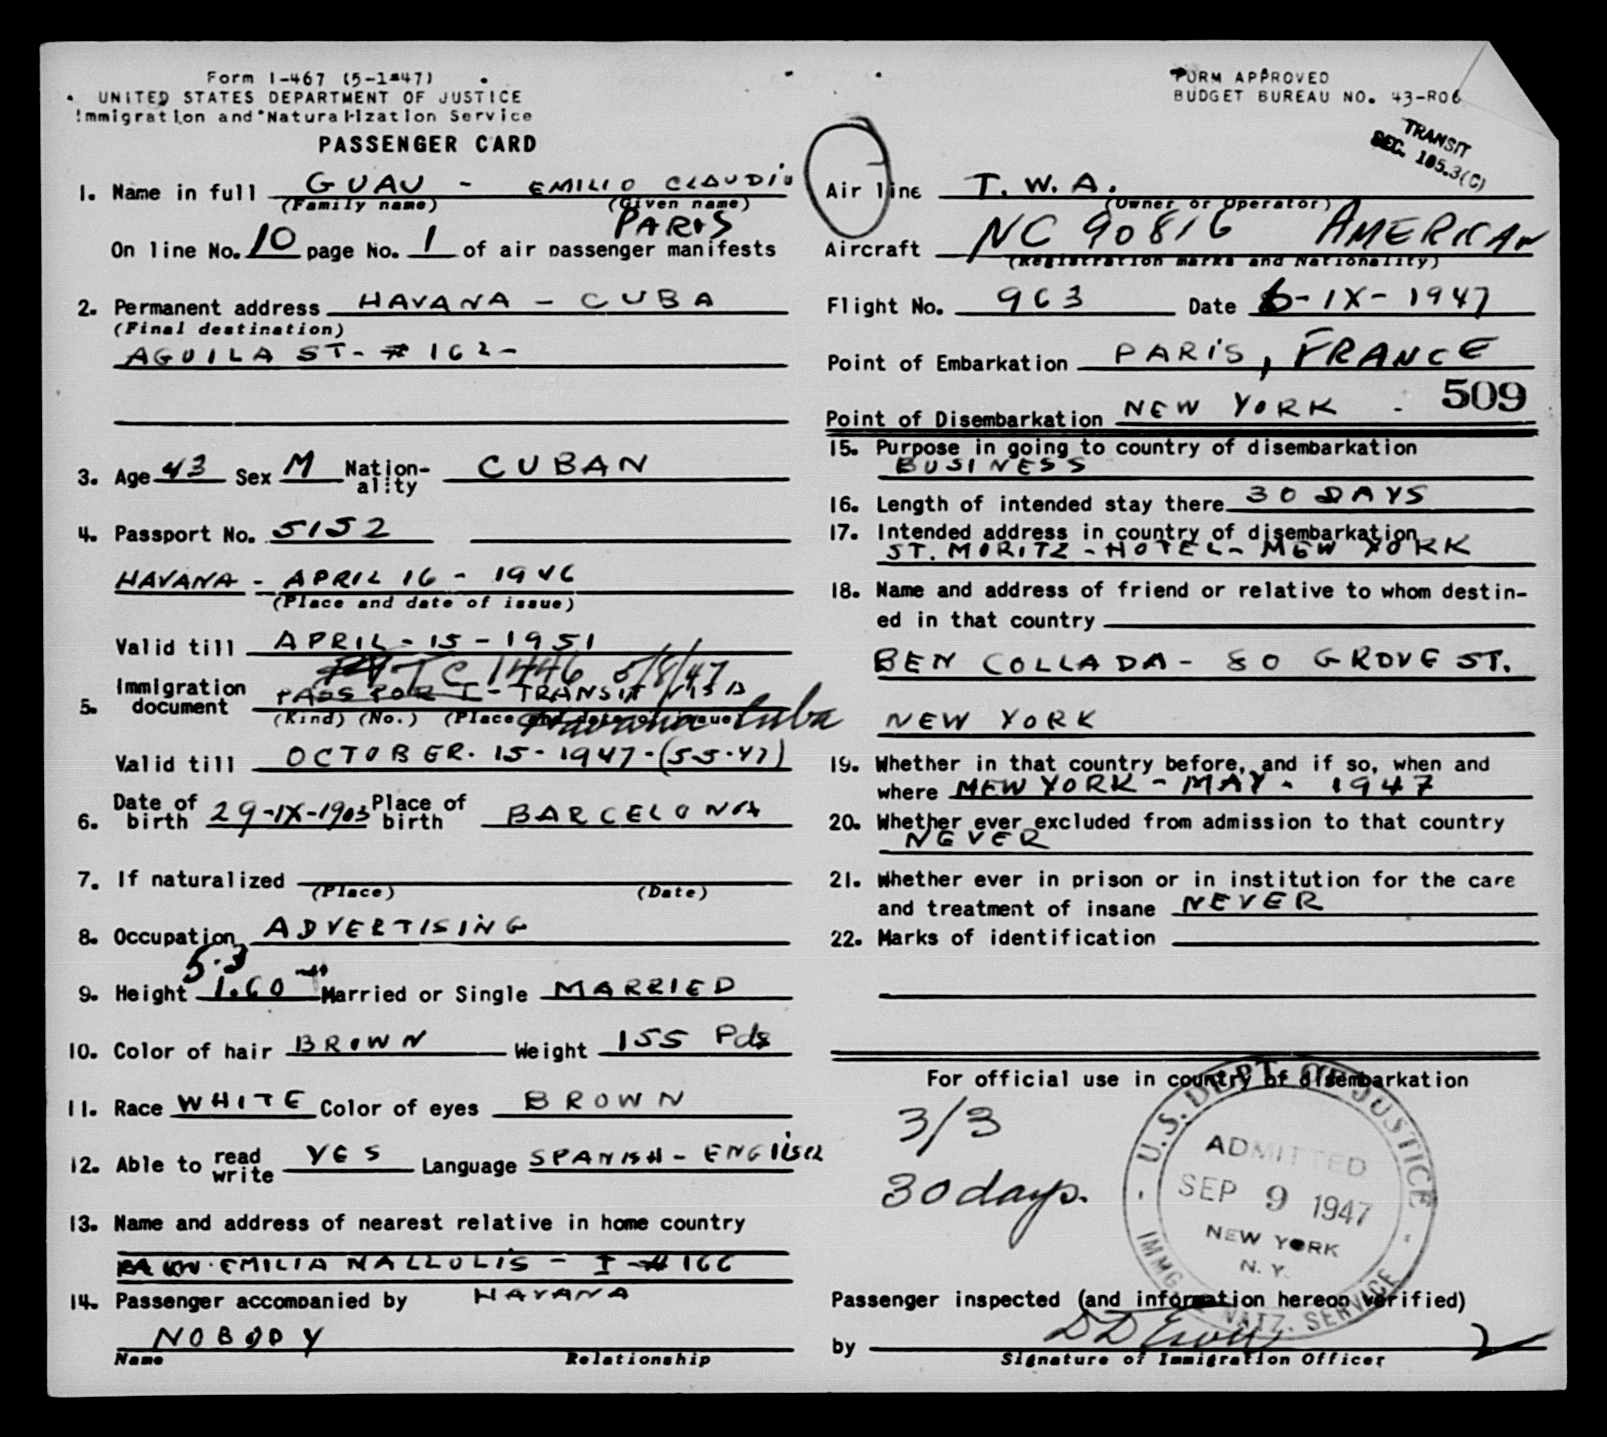 Form I-467 (5-1-47)
UNITED STATES DEPARTMENT OF JUSTICE
Immigration and Naturalization Service
PASSENGER CARD
FORM APPROVED
BUDGET BUREAU NO. 43-R06
TRANSIT
SEC. 105.3(C)
1. Name in full GUAU - EMILIO CLAUDIO
(Family name) (Given name)
PARIS
On line No. 10 page No. 1 of air passenger manifests
2. Permanent address HAVANA - CUBA
(Final destination)
AGUILA ST- # 162-
3. Age 43 Sex M Nation-ality CUBAN
4. Passport No. 5152
HAVANA - APRIL 16 - 1946
(Place and date of issue)
Valid till APRIL - 15 - 1951
TC 1446 5/8/47
5. Immigration document PASSPORT - TRANSIT VISA
(Kind) (No.) (Place and date of issue)
Havana Cuba
Valid till OCTOBER. 15 - 1947 - (5-5-47)
6. Date of birth 29-IX-1903 Place of birth BARCELONA
7. If naturalized
(Place) (Date)
8. Occupation ADVERTISING
5.3
9. Height 1.60 Married or Single MARRIED
10. Color of hair BROWN Weight 155 Pds
11. Race WHITE Color of eyes BROWN
12. Able to read write YES Language SPANISH - ENGLISH
13. Name and address of nearest relative in home country
EMILIA MALLOLIS - I - # 166
HAVANA
14. Passenger accompanied by
NOBODY
Name Relationship
Air line T. W. A.
(Owner or Operator)
Aircraft NC 90816 AMERICAN
(Registration marks and Nationality)
Flight No. 963 Date 6-IX-1947
Point of Embarkation PARIS, FRANCE
509
Point of Disembarkation NEW YORK -
15. Purpose in going to country of disembarkation
BUSINESS
16. Length of intended stay there 30 DAYS
17. Intended address in country of disembarkation
ST. MORITZ - HOTEL - NEW YORK
18. Name and address of friend or relative to whom destin-
ed in that country
BEN COLLADA - 80 GROVE ST.
NEW YORK
19. Whether in that country before, and if so, when and
where NEW YORK - MAY - 1947
20. Whether ever excluded from admission to that country
NEVER
21. Whether ever in prison or in institution for the care
and treatment of insane NEVER
22. Marks of identification
For official use in country of disembarkation
3/3
30 days.
U.S. DEPT. OF JUSTICE
ADMITTED
SEP 9 1947
NEW YORK
N. Y.
IMMG. NATZ. SERVICE
Passenger inspected (and information hereon verified)
by
Signature of Immigration Officer
2